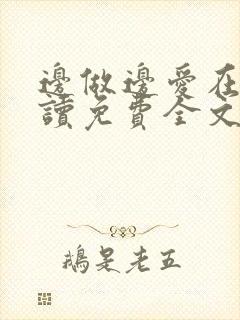 邊做邊愛在
讀免費全文
鵝是老五